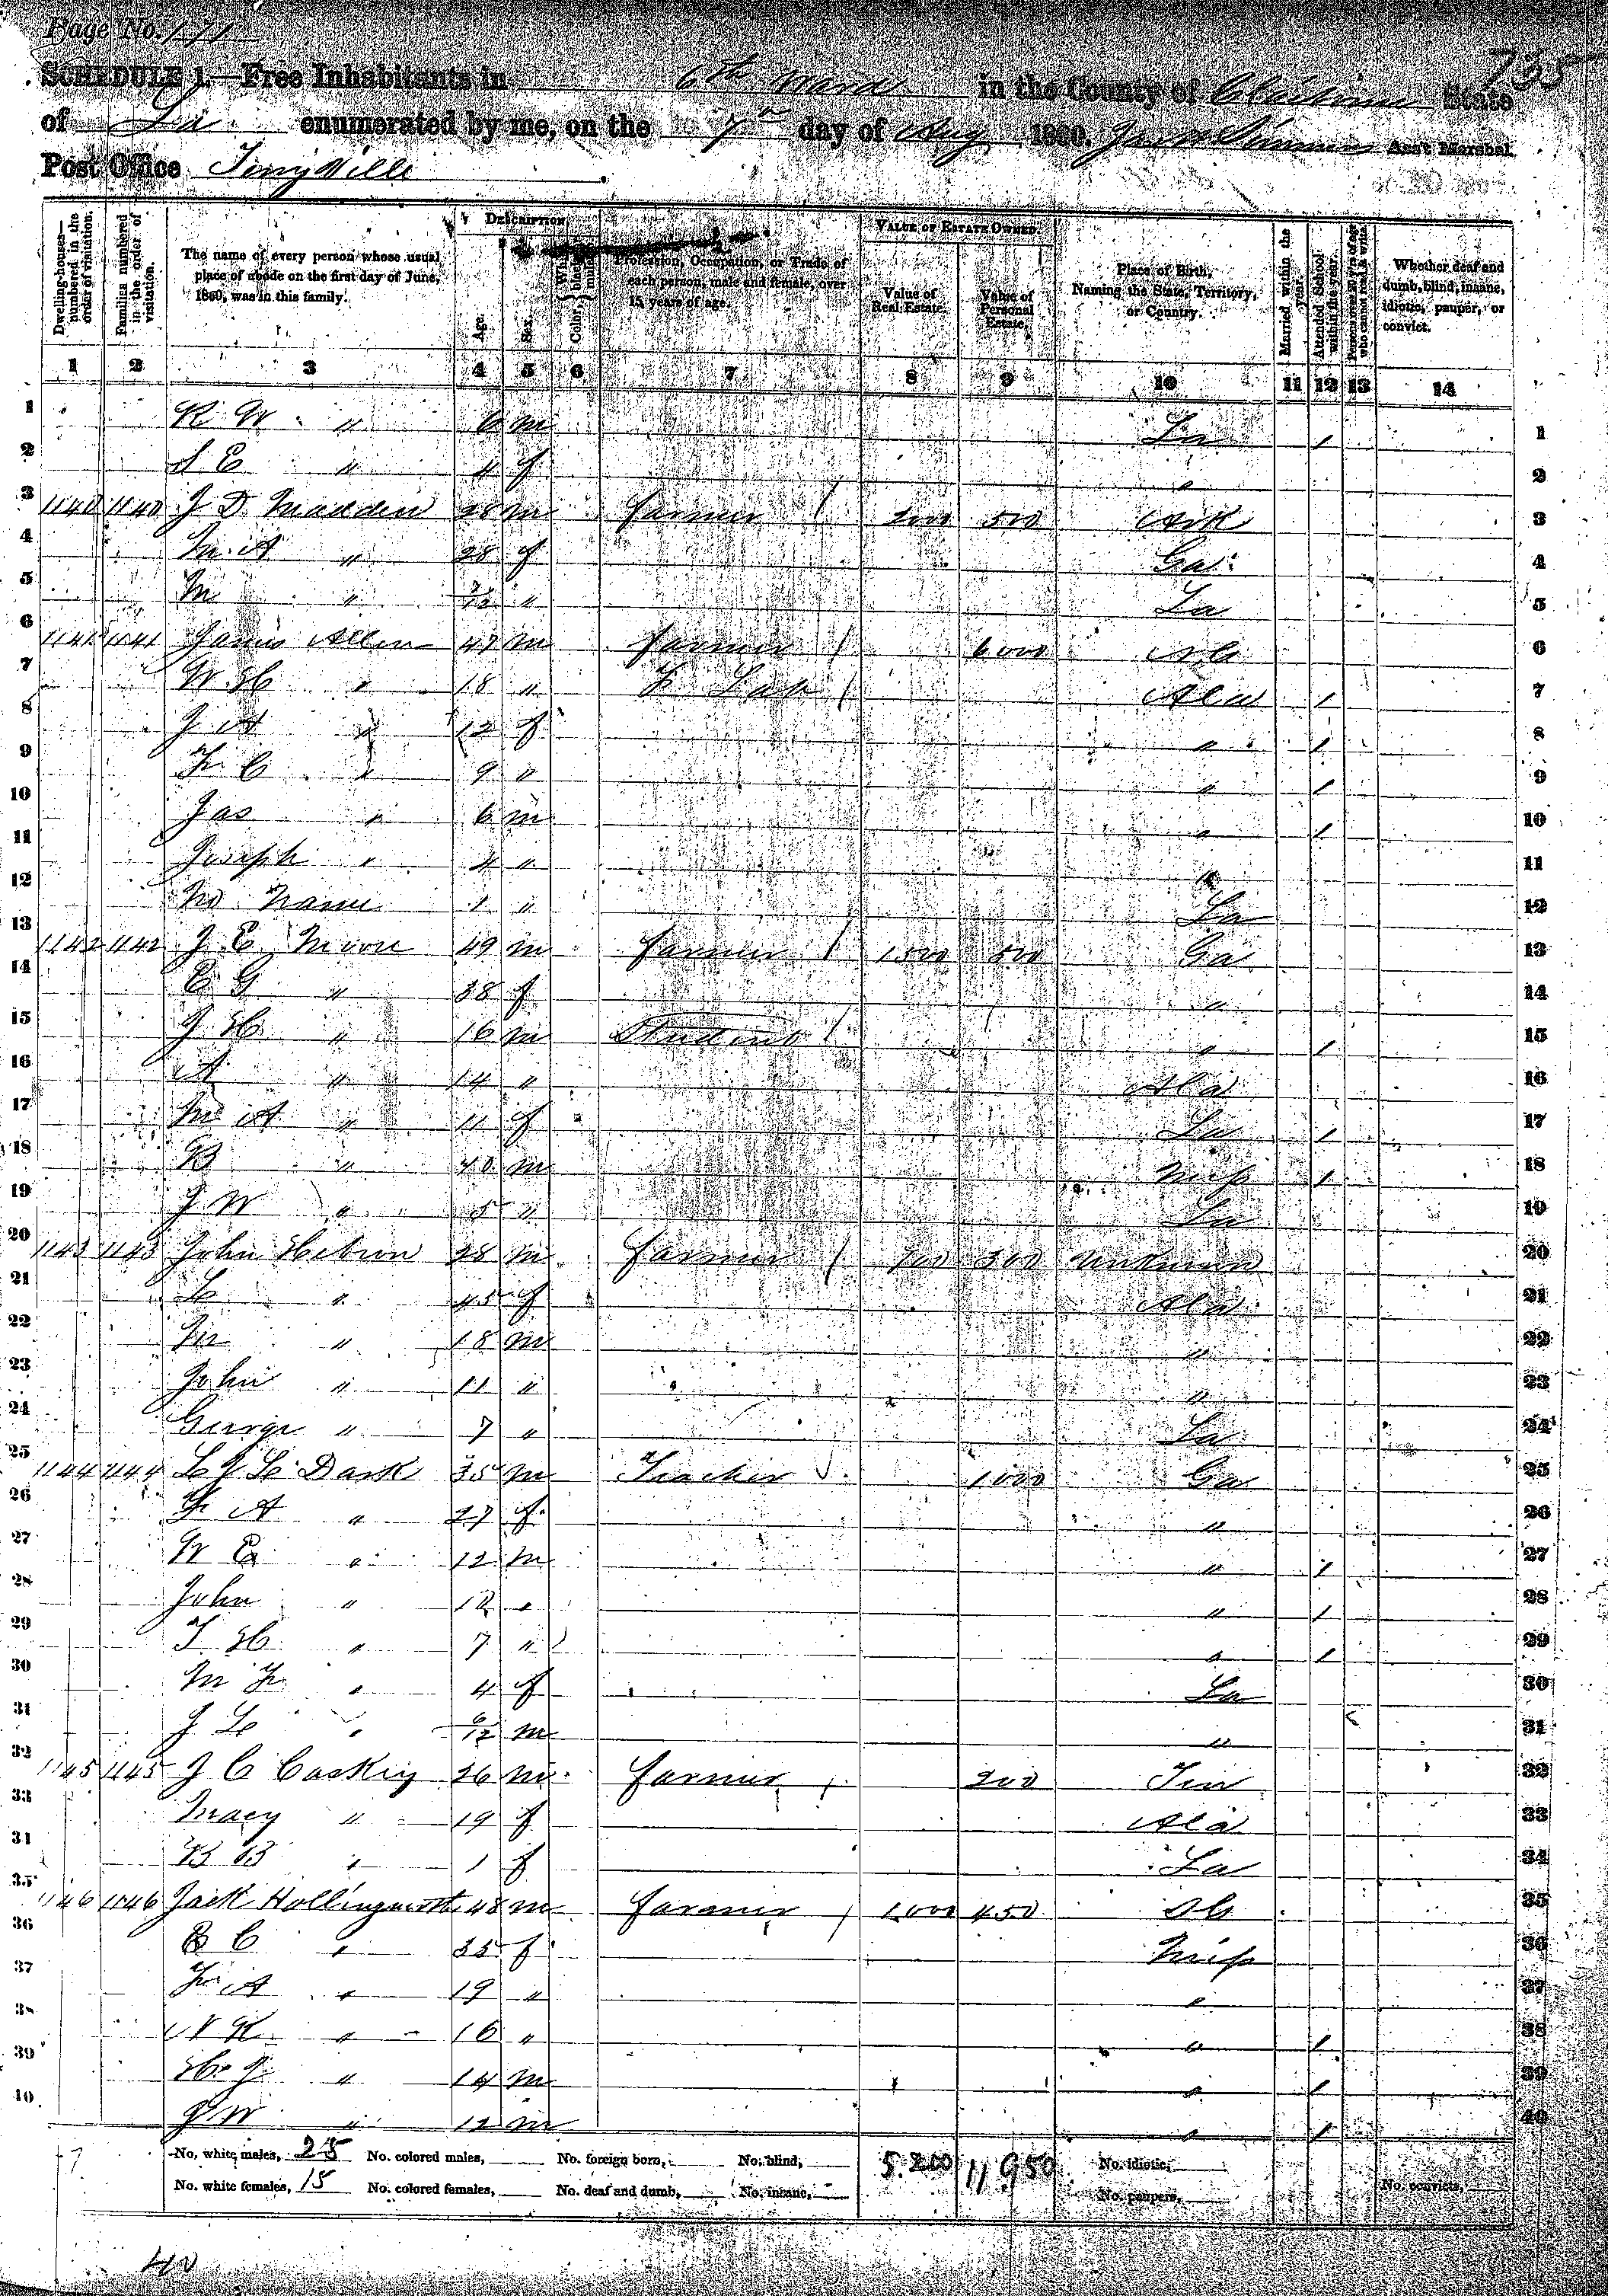 Page No. 171
735
SCHEDULE 1.—Free Inhabitants in 6th Ward in the County of Claiborne State
of La enumerated by me, on the 7th day of Aug 1860. Ass't Marshal.
Post Office
Dwelling-houses—numbered in the order of visitation.
Families numbered in the order of visitation.
The name of every person whose usual place of abode on the first day of June, 1860, was in this family.
DESCRIPTION.
Age.
Sex.
Color,
Profession, Occupation, or Trade of each person, male and female, over 15 years of age.
VALUE OF ESTATE OWNED.
Value of Real Estate.
Value of Personal Estate.
Place of Birth, Naming the State, Territory, or Country.
Married within the year.
Attended School within the year.
Persons over 20 y'rs of age who cannot read & write.
Whether deaf and dumb, blind, insane, idiotic, pauper, or convict.
1 2 3 4 5 6 7 8 9 10 11 12 13 14
1 R W " 6 m La / 1
2 S E " 4 f " 2
3 1140 1140 J D Madden 28 m Farmer / 500 Ark 3
4 M A " 28 f Ga 4
5 M " " La 5
6 1141 1141 James Allen 47 m Farmer / 6000 6
7 W H " 18 " F Lab / Ala / 7
8 J A " 12 f " / 8
9 F C " 9 " " / 9
10 Jas " 6 m " / 10
11 Joseph " 4 " " 11
12 No Name 1 " La 12
13 1142 1142 J E Moore 49 m Farmer / 1500 500 Ga 13
14 E G " 38 f " 14
15 J H " 16 m Student / " / 15
16 A " 14 " Ala 16
17 M A " 11 f La / 17
18 B " m Miss / 18
19 J W " 5 " La 19
20 1143 1143 John 28 m Farmer / 700 300 Unknown 20
21 L " 45 f Ala 21
22 M " 18 m " 22
23 John " 11 " " 23
24 George " 7 " La 24
25 1144 1144 L J L Dark 35 m Teacher 1000 Ga 25
26 F A " 27 f " 26
27 W E " 12 m " / 27
28 John " " " / 28
29 T H " 7 " " / 29
30 M F " 4 f La 30
31 J L " 6/12 m " 31
32 1145 1145 J C Caskey 26 m Farmer / 200 Ten 32
33 Macy " 19 f Ala 33
34 B B " 1 f La 34
35 1146 1146 Jack Hollingworth 48 m Farmer / 1000 450 35
36 E C " 35 f Miss 36
37 F A " 19 " " 37
38 N R " 16 " " / 38
39 H J " 14 m " / 39
40 J W " 12 m " / 40
No. white males, 25 No. colored males, No. foreign born, No. blind, 5.200 11950 No. idiotic,
No. white females, 15 No. colored females, No. deaf and dumb, No. insane, No. paupers, No. convicts,
40